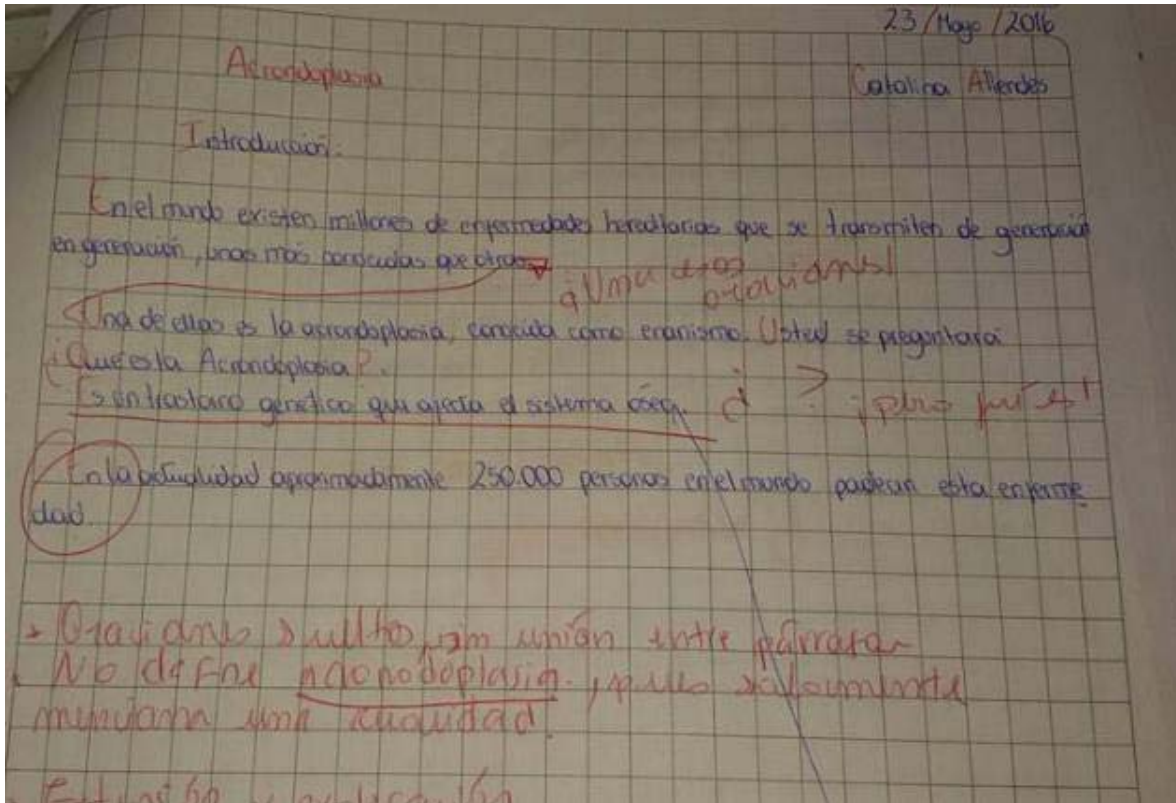 23/Mayo/2016
Acrondoplasia
Catalina Allendes
Introducción:
En el mundo existen millones de enfermedades hereditarias que se transmiten de generación
en generación, unas más conocidas que otras
oraciones!
Una de ellas es la acrondoplasia, conocida como enanismo. Usted se preguntará
¿Que es la Acrondoplasia?.
Es un trastorno genético que afecta el sistema óseo. ¿ ? ¡pero qué es!
En la actualidad aproximadamente 250.000 personas en el mundo padecen esta enferme
dad.
Oraciones sueltas, sin unión entre párrafos
No define , pues solamente
menciona una cualidad.